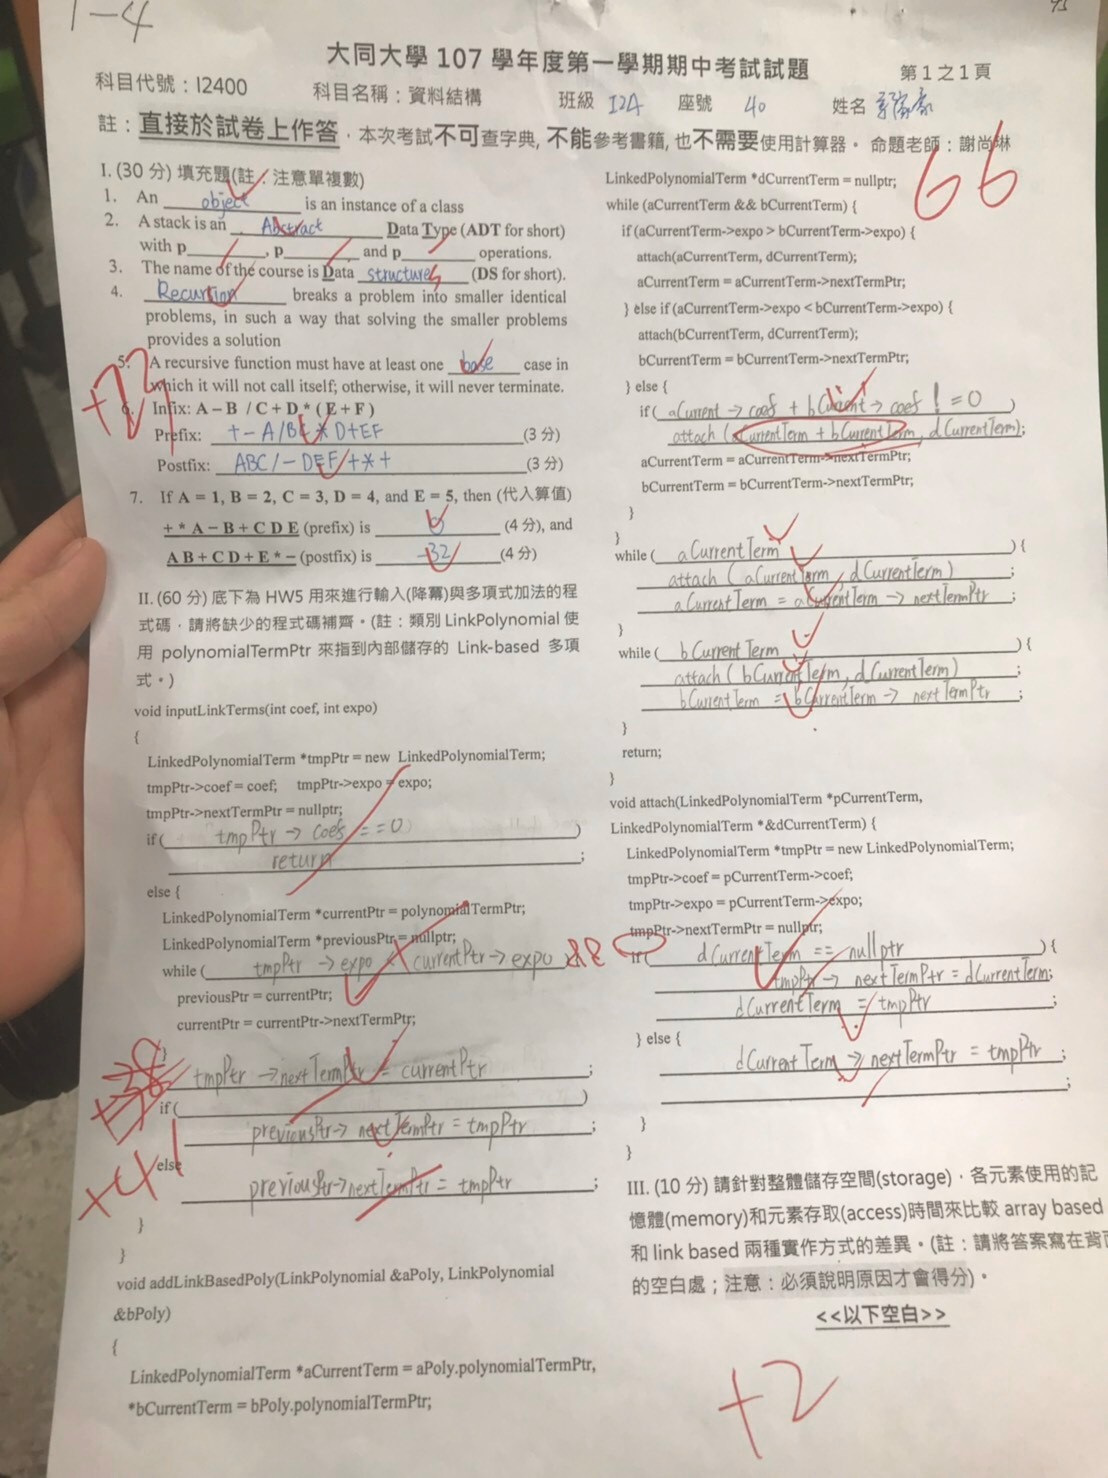 1-4
大同大學 107 學年度第一學期期中考試試題
科目代號：I2400 科目名稱：資料結構 班級 I2A 座號 40 姓名
第 1 之 1 頁
註：直接於試卷上作答，本次考試不可查字典, 不能參考書籍, 也不需要使用計算器。 命題老師：謝尚琳
66
I. (30 分) 填充題(註：注意單複數)
1. An object is an instance of a class
2. A stack is an Abstract Data Type (ADT for short)
with p________, p________ and p________ operations.
3. The name of the course is Data structures (DS for short).
4. Recursion breaks a problem into smaller identical
problems, in such a way that solving the smaller problems
provides a solution
5. A recursive function must have at least one base case in
which it will not call itself; otherwise, it will never terminate.
6. Infix: A – B / C + D * ( E + F )
Prefix: + - A/BC * D+EF (3 分)
Postfix: ABC/-DEF+*+ (3 分)
+27
7. If A = 1, B = 2, C = 3, D = 4, and E = 5, then (代入算值)
+ * A – B + C D E (prefix) is 0 (4 分), and
A B + C D + E * – (postfix) is -32 (4 分)
II. (60 分) 底下為 HW5 用來進行輸入(降冪)與多項式加法的程
式碼，請將缺少的程式碼補齊。(註：類別 LinkPolynomial 使
用 polynomialTermPtr 來指到內部儲存的 Link-based 多項
式。)
void inputLinkTerms(int coef, int expo)
{
LinkedPolynomialTerm *tmpPtr = new LinkedPolynomialTerm;
tmpPtr->coef = coef; tmpPtr->expo = expo;
tmpPtr->nextTermPtr = nullptr;
if ( tmpPtr → coef == 0 )
return ;
else {
LinkedPolynomialTerm *currentPtr = polynomialTermPtr;
LinkedPolynomialTerm *previousPtr = nullptr;
while ( tmpPtr → expo < currentPtr → expo &&
previousPtr = currentPtr;
currentPtr = currentPtr->nextTermPtr;
}
tmpPtr → nextTermPtr = currentPtr ;
if ( )
previousPtr → nextTermPtr = tmpPtr ;
else
previousPtr → nextTermPtr = tmpPtr ;
+41
}
}
void addLinkBasedPoly(LinkPolynomial &aPoly, LinkPolynomial
&bPoly)
{
LinkedPolynomialTerm *aCurrentTerm = aPoly.polynomialTermPtr,
*bCurrentTerm = bPoly.polynomialTermPtr;
LinkedPolynomialTerm *dCurrentTerm = nullptr;
while (aCurrentTerm && bCurrentTerm) {
if (aCurrentTerm->expo > bCurrentTerm->expo) {
attach(aCurrentTerm, dCurrentTerm);
aCurrentTerm = aCurrentTerm->nextTermPtr;
} else if (aCurrentTerm->expo < bCurrentTerm->expo) {
attach(bCurrentTerm, dCurrentTerm);
bCurrentTerm = bCurrentTerm->nextTermPtr;
} else {
if ( aCurrent → coef + bCurrent → coef != 0 )
attach (aCurrentTerm + bCurrentTerm, dCurrentTerm);
aCurrentTerm = aCurrentTerm->nextTermPtr;
bCurrentTerm = bCurrentTerm->nextTermPtr;
}
}
while ( aCurrentTerm ) {
attach ( aCurrentTerm, dCurrentTerm) ;
aCurrentTerm = aCurrentTerm → nextTermPtr ;
}
while ( bCurrentTerm ) {
attach ( bCurrentTerm, dCurrentTerm) ;
bCurrentTerm = bCurrentTerm → nextTermPtr ;
}
return;
}
void attach(LinkedPolynomialTerm *pCurrentTerm,
LinkedPolynomialTerm *&dCurrentTerm) {
LinkedPolynomialTerm *tmpPtr = new LinkedPolynomialTerm;
tmpPtr->coef = pCurrentTerm->coef;
tmpPtr->expo = pCurrentTerm->expo;
tmpPtr->nextTermPtr = nullptr;
if ( dCurrentTerm == nullptr ) {
tmpPtr → nextTermPtr = dCurrentTerm;
dCurrentTerm = tmpPtr ;
} else {
dCurrentTerm → nextTermPtr = tmpPtr ;
;
}
}
III. (10 分) 請針對整體儲存空間(storage)，各元素使用的記
憶體(memory)和元素存取(access)時間來比較 array based
和 link based 兩種實作方式的差異。(註：請將答案寫在背面
的空白處；注意：必須說明原因才會得分)。
<<以下空白>>
+2